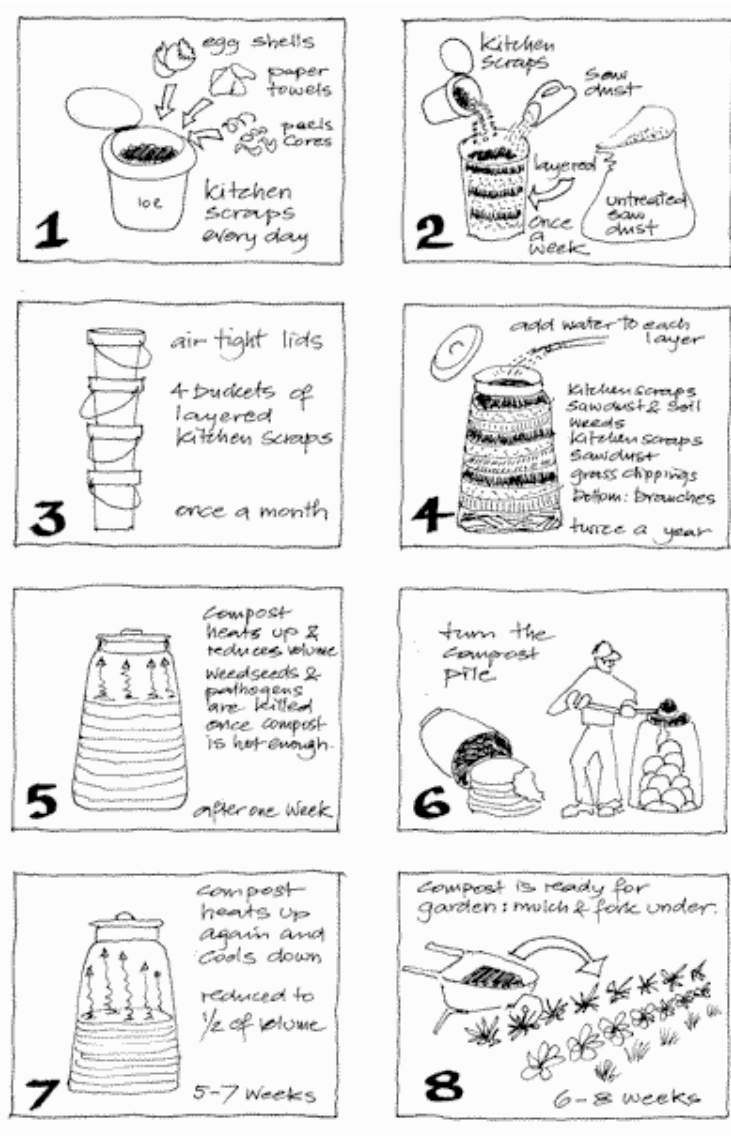 egg shells
paper
towels
peels
cores
10 l
kitchen
scraps
every day
1
kitchen
scraps
saw
dust
layered
once
a
week
untreated
saw
dust
2
air tight lids
4 buckets of
layered
kitchen scraps
once a month
3
add water to each
layer
kitchen scraps
sawdust & soil
weeds
kitchen scraps
sawdust
grass clippings
bottom: branches
twice a year
4
compost
heats up &
reduces volume
weedseeds &
pathogens
are killed
once compost
is hot enough.
after one week
5
turn the
compost
pile
6
compost
heats up
again and
cools down
reduced to
1/2 of volume
5-7 weeks
7
compost is ready for
garden: mulch & fork under.
6-8 weeks
8